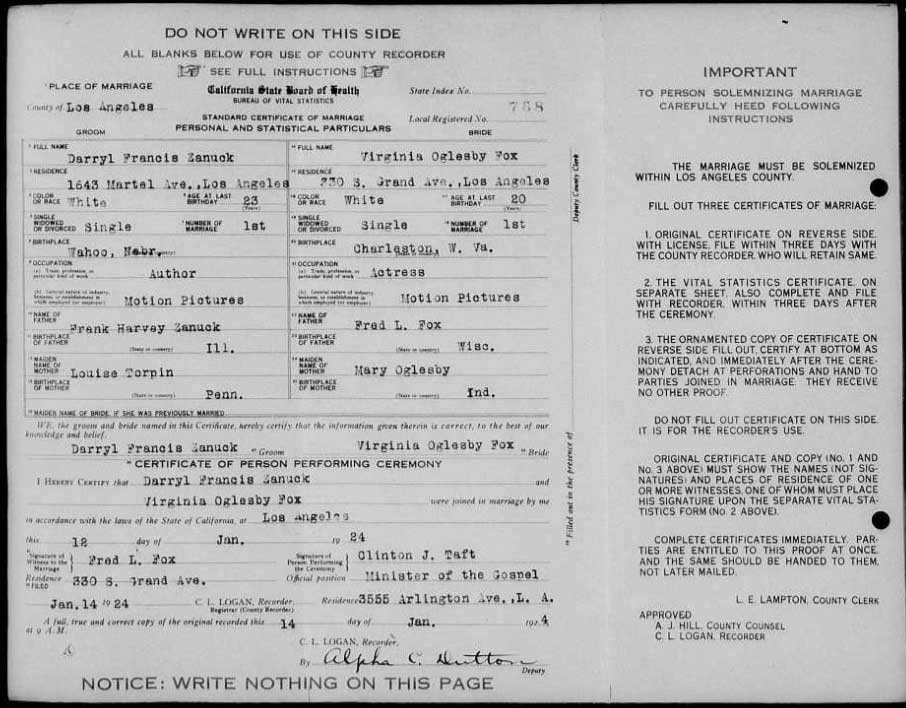 DO NOT WRITE ON THIS SIDE
ALL BLANKS BELOW FOR USE OF COUNTY RECORDER
SEE FULL INSTRUCTIONS
PLACE OF MARRIAGE
California State Board of Health
State Index No.
BUREAU OF VITAL STATISTICS
County of Los Angeles
758
STANDARD CERTIFICATE OF MARRIAGE
Local Registered No.
PERSONAL AND STATISTICAL PARTICULARS
GROOM
BRIDE
FULL NAME Darryl Francis Zanuck
FULL NAME Virginia Oglesby Fox
RESIDENCE 1643 Martel Ave., Los Angeles
RESIDENCE 330 S. Grand Ave., Los Angeles
COLOR OR RACE White AGE AT LAST BIRTHDAY 23 (Years)
COLOR OR RACE White AGE AT LAST BIRTHDAY 20 (Years)
SINGLE WIDOWED OR DIVORCED Single NUMBER OF MARRIAGE 1st
SINGLE WIDOWED OR DIVORCED Single NUMBER OF MARRIAGE 1st
BIRTHPLACE Wahoo, Nebr.
BIRTHPLACE Charleston, W. Va.
OCCUPATION
(a) Trade, profession, or particular kind of work Author
OCCUPATION
(a) Trade, profession, or particular kind of work Actress
(b) General nature of industry, business, or establishment in which employed (or employer) Motion Pictures
(b) General nature of industry, business, or establishment in which employed (or employer) Motion Pictures
NAME OF FATHER Frank Harvey Zanuck
NAME OF FATHER Fred L. Fox
BIRTHPLACE OF FATHER (State or country) Ill.
BIRTHPLACE OF FATHER (State or country) Wisc.
MAIDEN NAME OF MOTHER Louise Torpin
MAIDEN NAME OF MOTHER Mary Oglesby
BIRTHPLACE OF MOTHER (State or country) Penn.
BIRTHPLACE OF MOTHER (State or country) Ind.
MAIDEN NAME OF BRIDE, IF SHE WAS PREVIOUSLY MARRIED
WE, the groom and bride named in this Certificate, hereby certify that the information given therein is correct, to the best of our
knowledge and belief.
Darryl Francis Zanuck Groom Virginia Oglesby Fox Bride
CERTIFICATE OF PERSON PERFORMING CEREMONY
I HEREBY CERTIFY that Darryl Francis Zanuck and
Virginia Oglesby Fox were joined in marriage by me
in accordance with the laws of the State of California, at Los Angeles
this 12 day of Jan. 1924
Signature of Witness to the Marriage Fred L. Fox
Signature of Person Performing the Ceremony Clinton J. Taft
Residence 330 S. Grand Ave.
Official position Minister of the Gospel
FILED
Jan. 14 1924 C. L. LOGAN, Recorder. Residence 3555 Arlington Ave., L. A.
Registrar (County Recorder)
A full, true and correct copy of the original recorded this 14 day of Jan. 1924,
at 9 A.M.
C. L. LOGAN, Recorder,
By Alpha C. Dutton
Deputy
NOTICE: WRITE NOTHING ON THIS PAGE
Deputy County Clerk
Filled out in the presence of
IMPORTANT
TO PERSON SOLEMNIZING MARRIAGE
CAREFULLY HEED FOLLOWING
INSTRUCTIONS
THE MARRIAGE MUST BE SOLEMNIZED
WITHIN LOS ANGELES COUNTY.
FILL OUT THREE CERTIFICATES OF MARRIAGE:
1. ORIGINAL CERTIFICATE ON REVERSE SIDE,
WITH LICENSE, FILE WITHIN THREE DAYS WITH
THE COUNTY RECORDER, WHO WILL RETAIN SAME.
2. THE VITAL STATISTICS CERTIFICATE, ON
SEPARATE SHEET, ALSO COMPLETE AND FILE
WITH RECORDER, WITHIN THREE DAYS AFTER
THE CEREMONY.
3. THE ORNAMENTED COPY OF CERTIFICATE ON
REVERSE SIDE FILL OUT, CERTIFY AT BOTTOM AS
INDICATED, AND IMMEDIATELY AFTER THE CERE-
MONY DETACH AT PERFORATIONS AND HAND TO
PARTIES JOINED IN MARRIAGE. THEY RECEIVE
NO OTHER PROOF.
DO NOT FILL OUT CERTIFICATE ON THIS SIDE.
IT IS FOR THE RECORDER'S USE.
ORIGINAL CERTIFICATE AND COPY (No. 1 AND
No. 3 ABOVE) MUST SHOW THE NAMES (NOT SIG-
NATURES) AND PLACES OF RESIDENCE OF ONE
OR MORE WITNESSES, ONE OF WHOM MUST PLACE
HIS SIGNATURE UPON THE SEPARATE VITAL STA-
TISTICS FORM (No. 2 ABOVE).
COMPLETE CERTIFICATES IMMEDIATELY. PAR-
TIES ARE ENTITLED TO THIS PROOF AT ONCE,
AND THE SAME SHOULD BE HANDED TO THEM,
NOT LATER MAILED.
L. E. LAMPTON, COUNTY CLERK
APPROVED
A. J. HILL, COUNTY COUNSEL
C. L. LOGAN, RECORDER